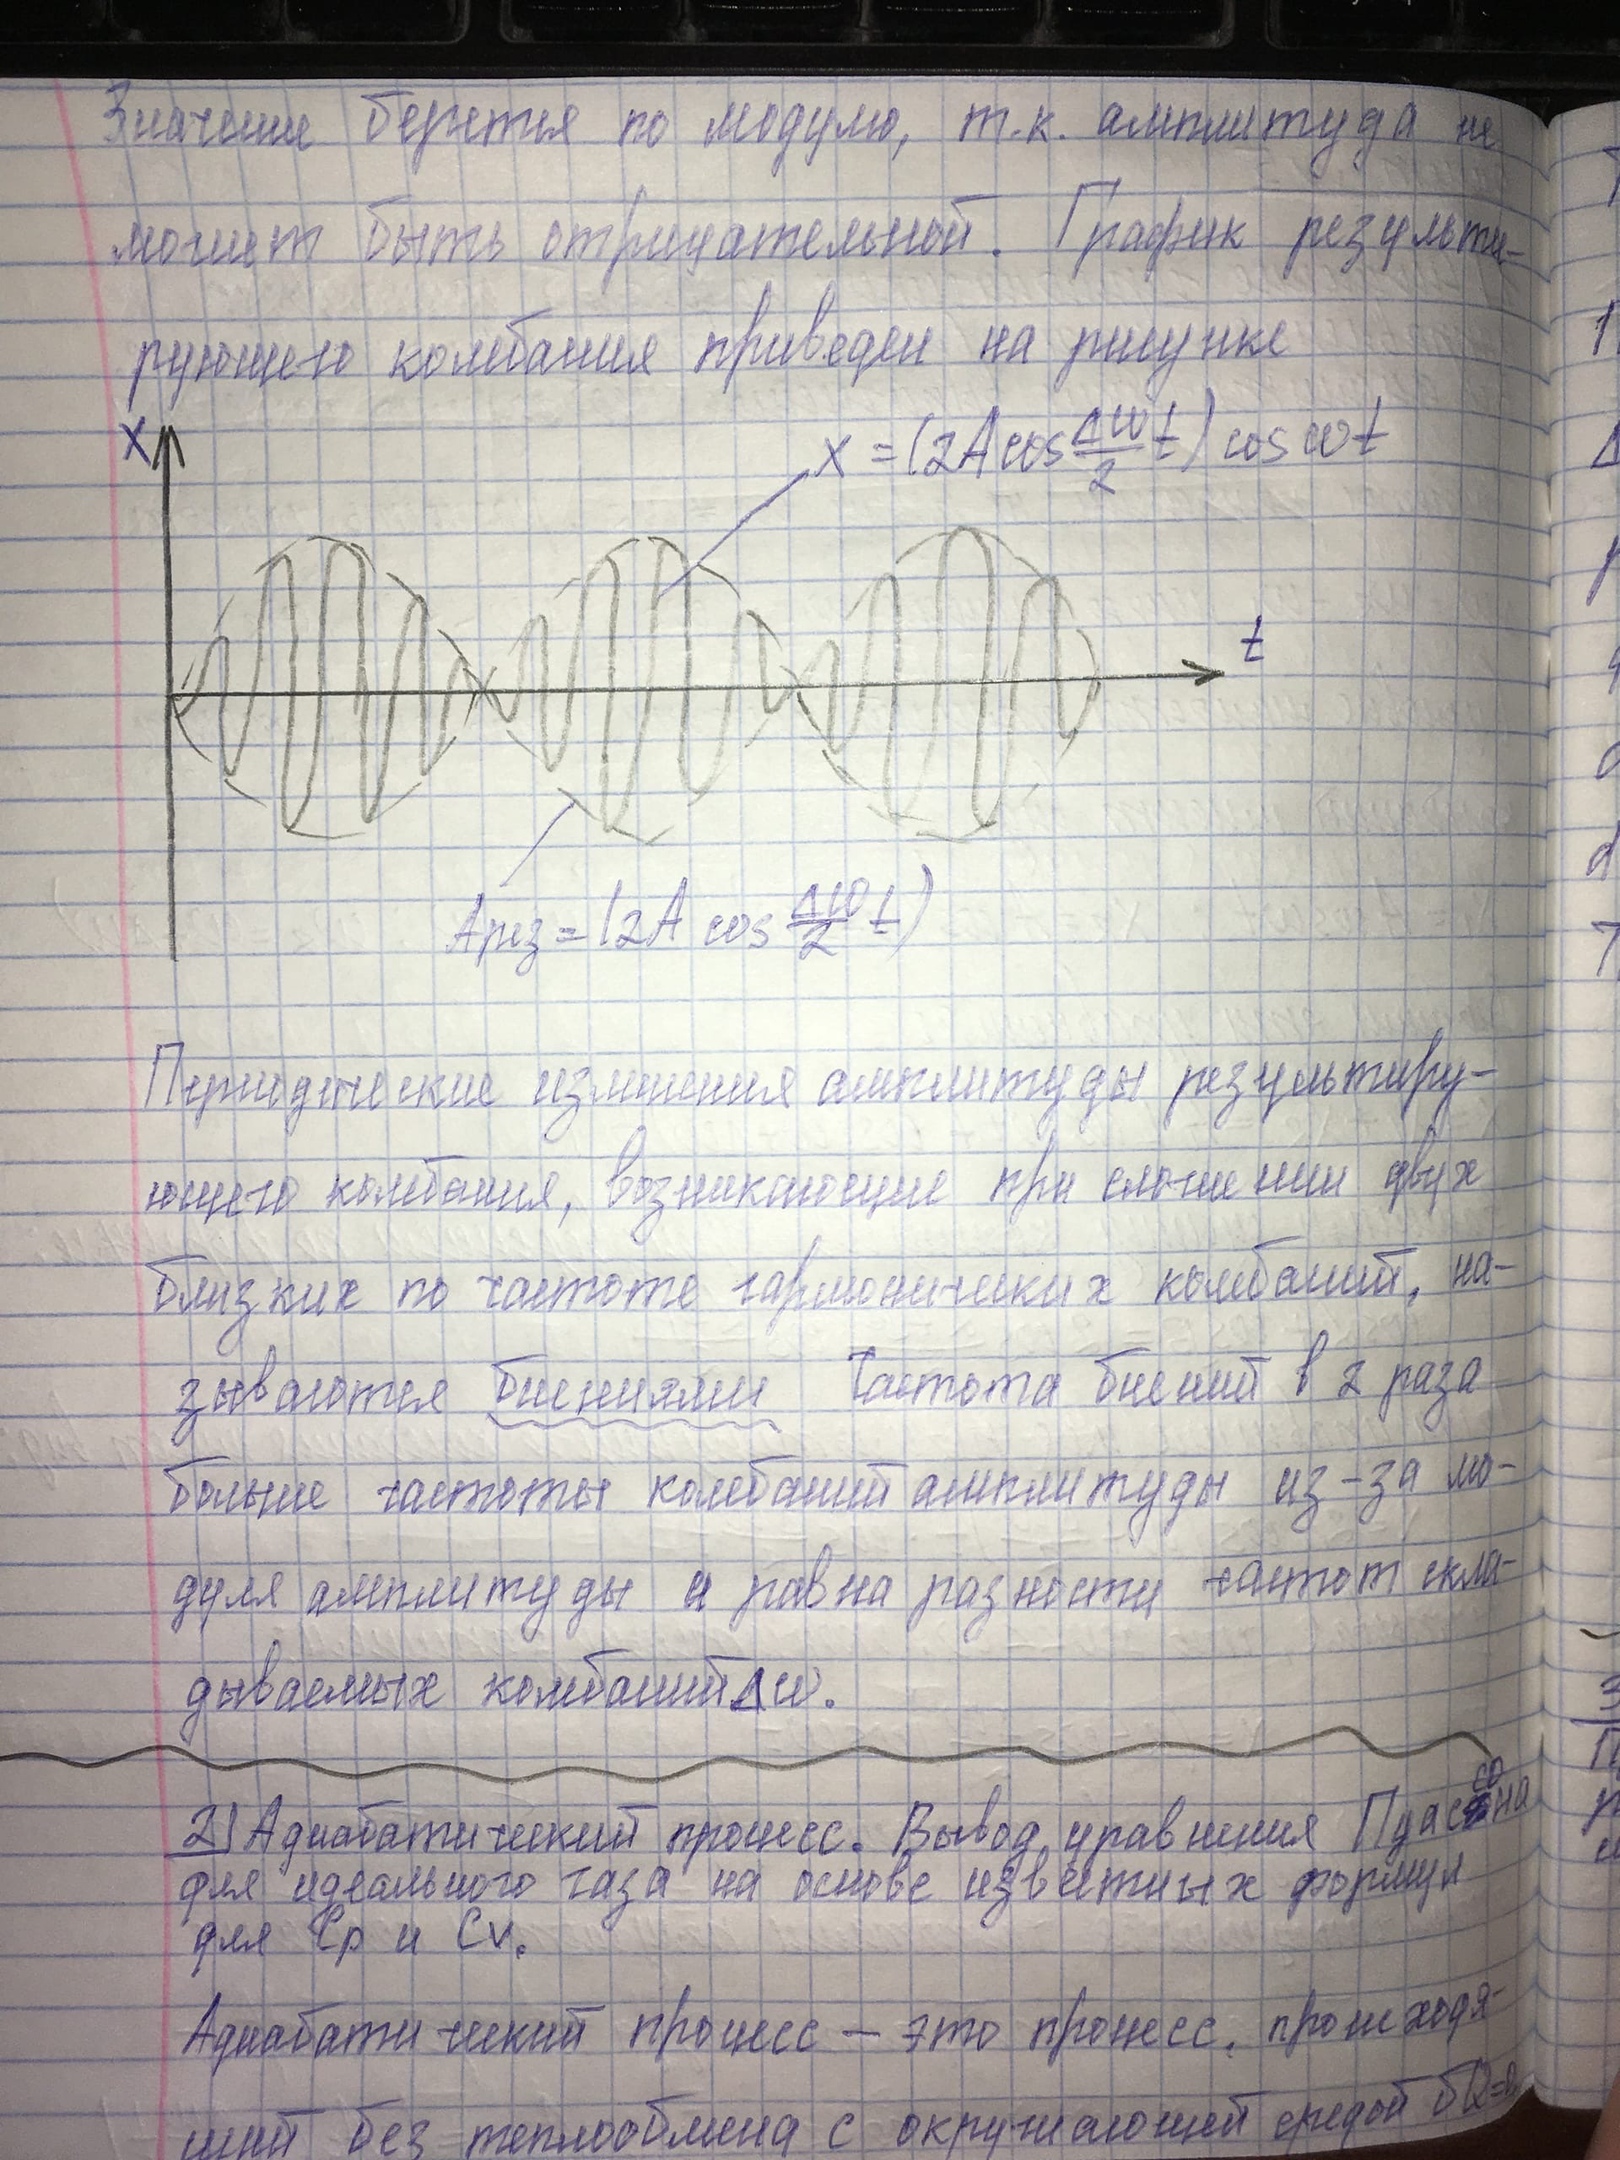 Значение берется по модулю, т.к. амплитуда не
может быть отрицательной. График результи-
рующего колебания приведен на рисунке
X
x = (2A cos Δω/2 t) cos ωt
t
Aрез = (2A cos Δω/2 t)
Периодические изменения амплитуды результиру-
ющего колебания, возникающие при сложении двух
близких по частоте гармонических колебаний, на-
зываются биениями Частота биений в 2 раза
больше частоты колебаний амплитуды из-за мо-
дуля амплитуды и равна разности частот скла-
дываемых колебаний Δω.
2) Адиабатический процесс. Вывод уравнения Пуассона
для идеального газа на основе известных формул
для Cp и Cv.
Адиабатический процесс – это процесс, происходя-
щий без теплообмена с окружающей средой δQ=0